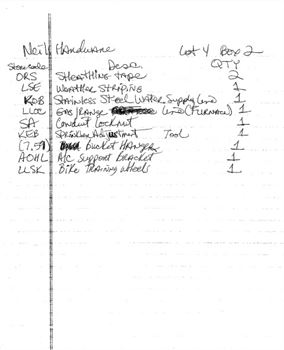 Neil Hardware Lot 4 Box 2
Store code Desc. QTY
ORS Sheathing tape 2
LSE Weather Striping 1
KOB Stainless Steel Water Supply Line 1
LLOE Gas/Range Line (Furnace) 1
SA Conduit Locknut 1
KEB Sprinkler Adjustment Tool 1
(7.59) Bucket Hanger 1
AOHL A/C Support Bracket 1
LLSK Bike Training Wheels 1